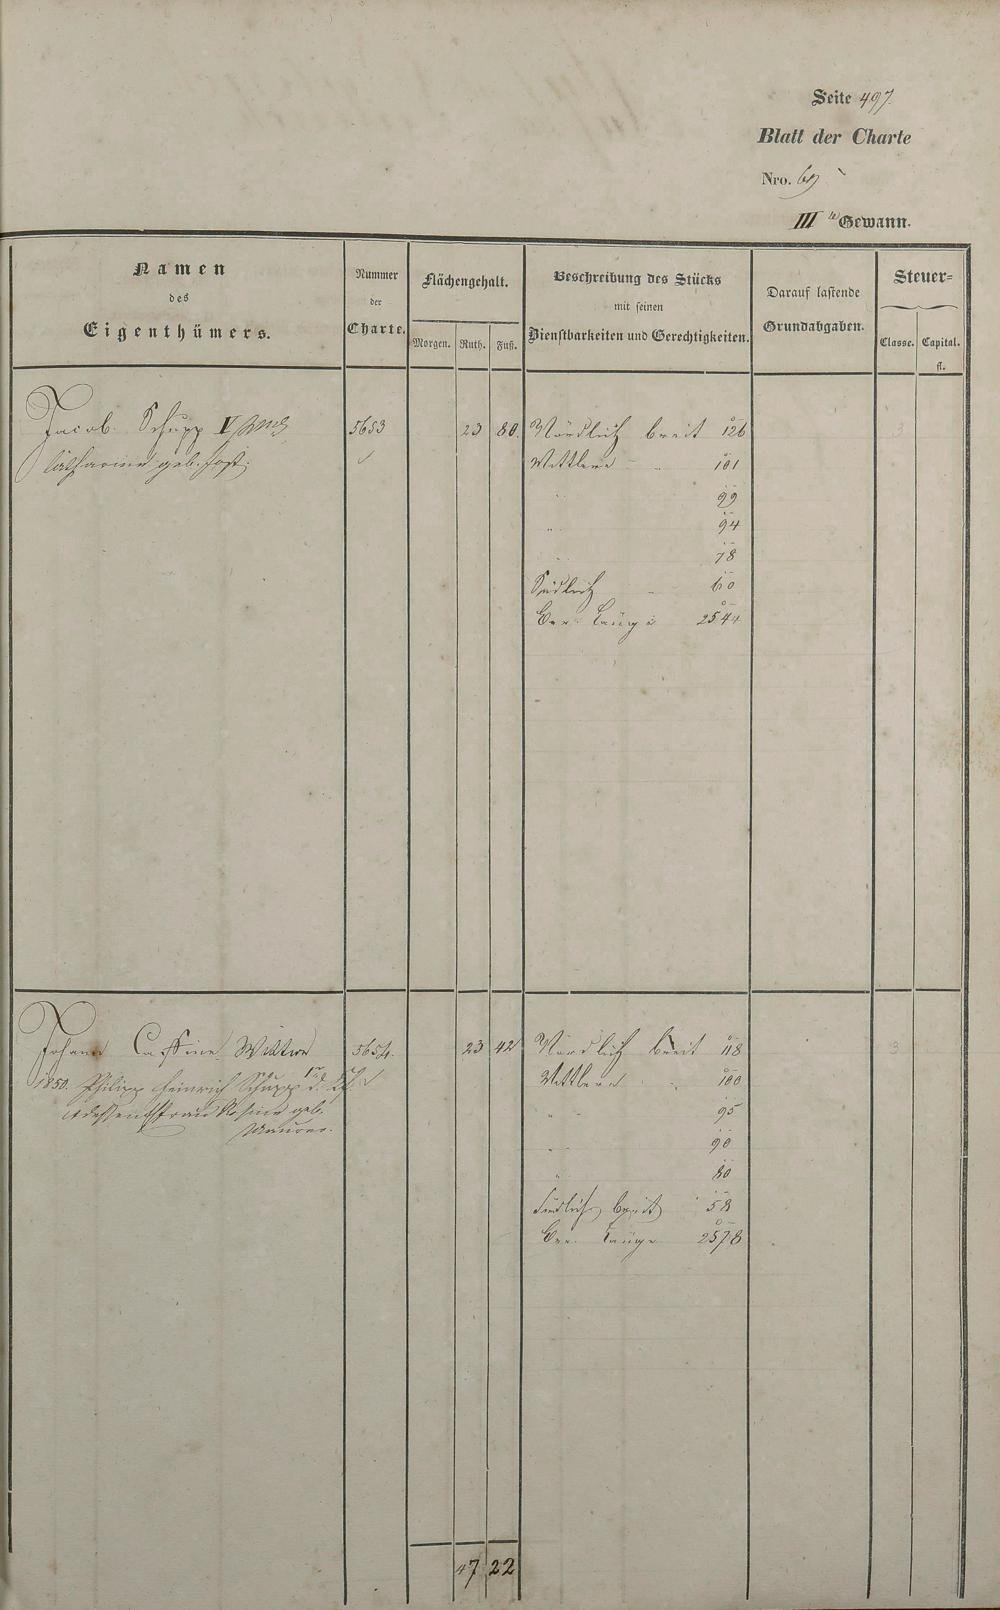 Seite 497
Blatt der Charte
Nro. 69
III te Gewann.
Namen
des
Eigenthümers.
Nummer
der
Charte.
Flächengehalt.
Morgen. Ruth. Fuß.
Beschreibung des Stücks
mit seinen
Dienstbarkeiten und Gerechtigkeiten.
Darauf lastende
Grundabgaben.
Steuer-
Classe. Capital.
fl.
Jacob Schupp V 5653 23 80 Nördlich breit 126 3
Catharine geb. Jost. Mittlere 101
" 99
" 94
" 78
Südlich 60
Länge 2544
Johann Wittwe 5654. 23 42 Nördlich breit 118 3
1850. Philipp Heinrich Schupp Mittlere 100
dessen Ehefrau Rosine geb. " 95
Maurer. " 90
" 80
Südlich breit 58
Länge 2578
47 22